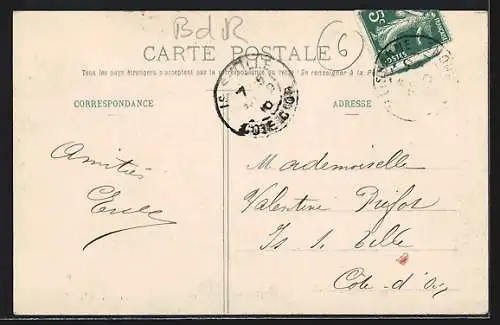 BdR
6
CARTE POSTALE
Tous les pays étrangers n'acceptent pas la correspondance au recto. (Se renseigner à la Poste)
CORRESPONDANCE
ADRESSE
IS-S-TILLE
COTE-D'OR
5c
Amitiés
Mademoiselle
Valentine
Is s. Tille
Côte-d'Or